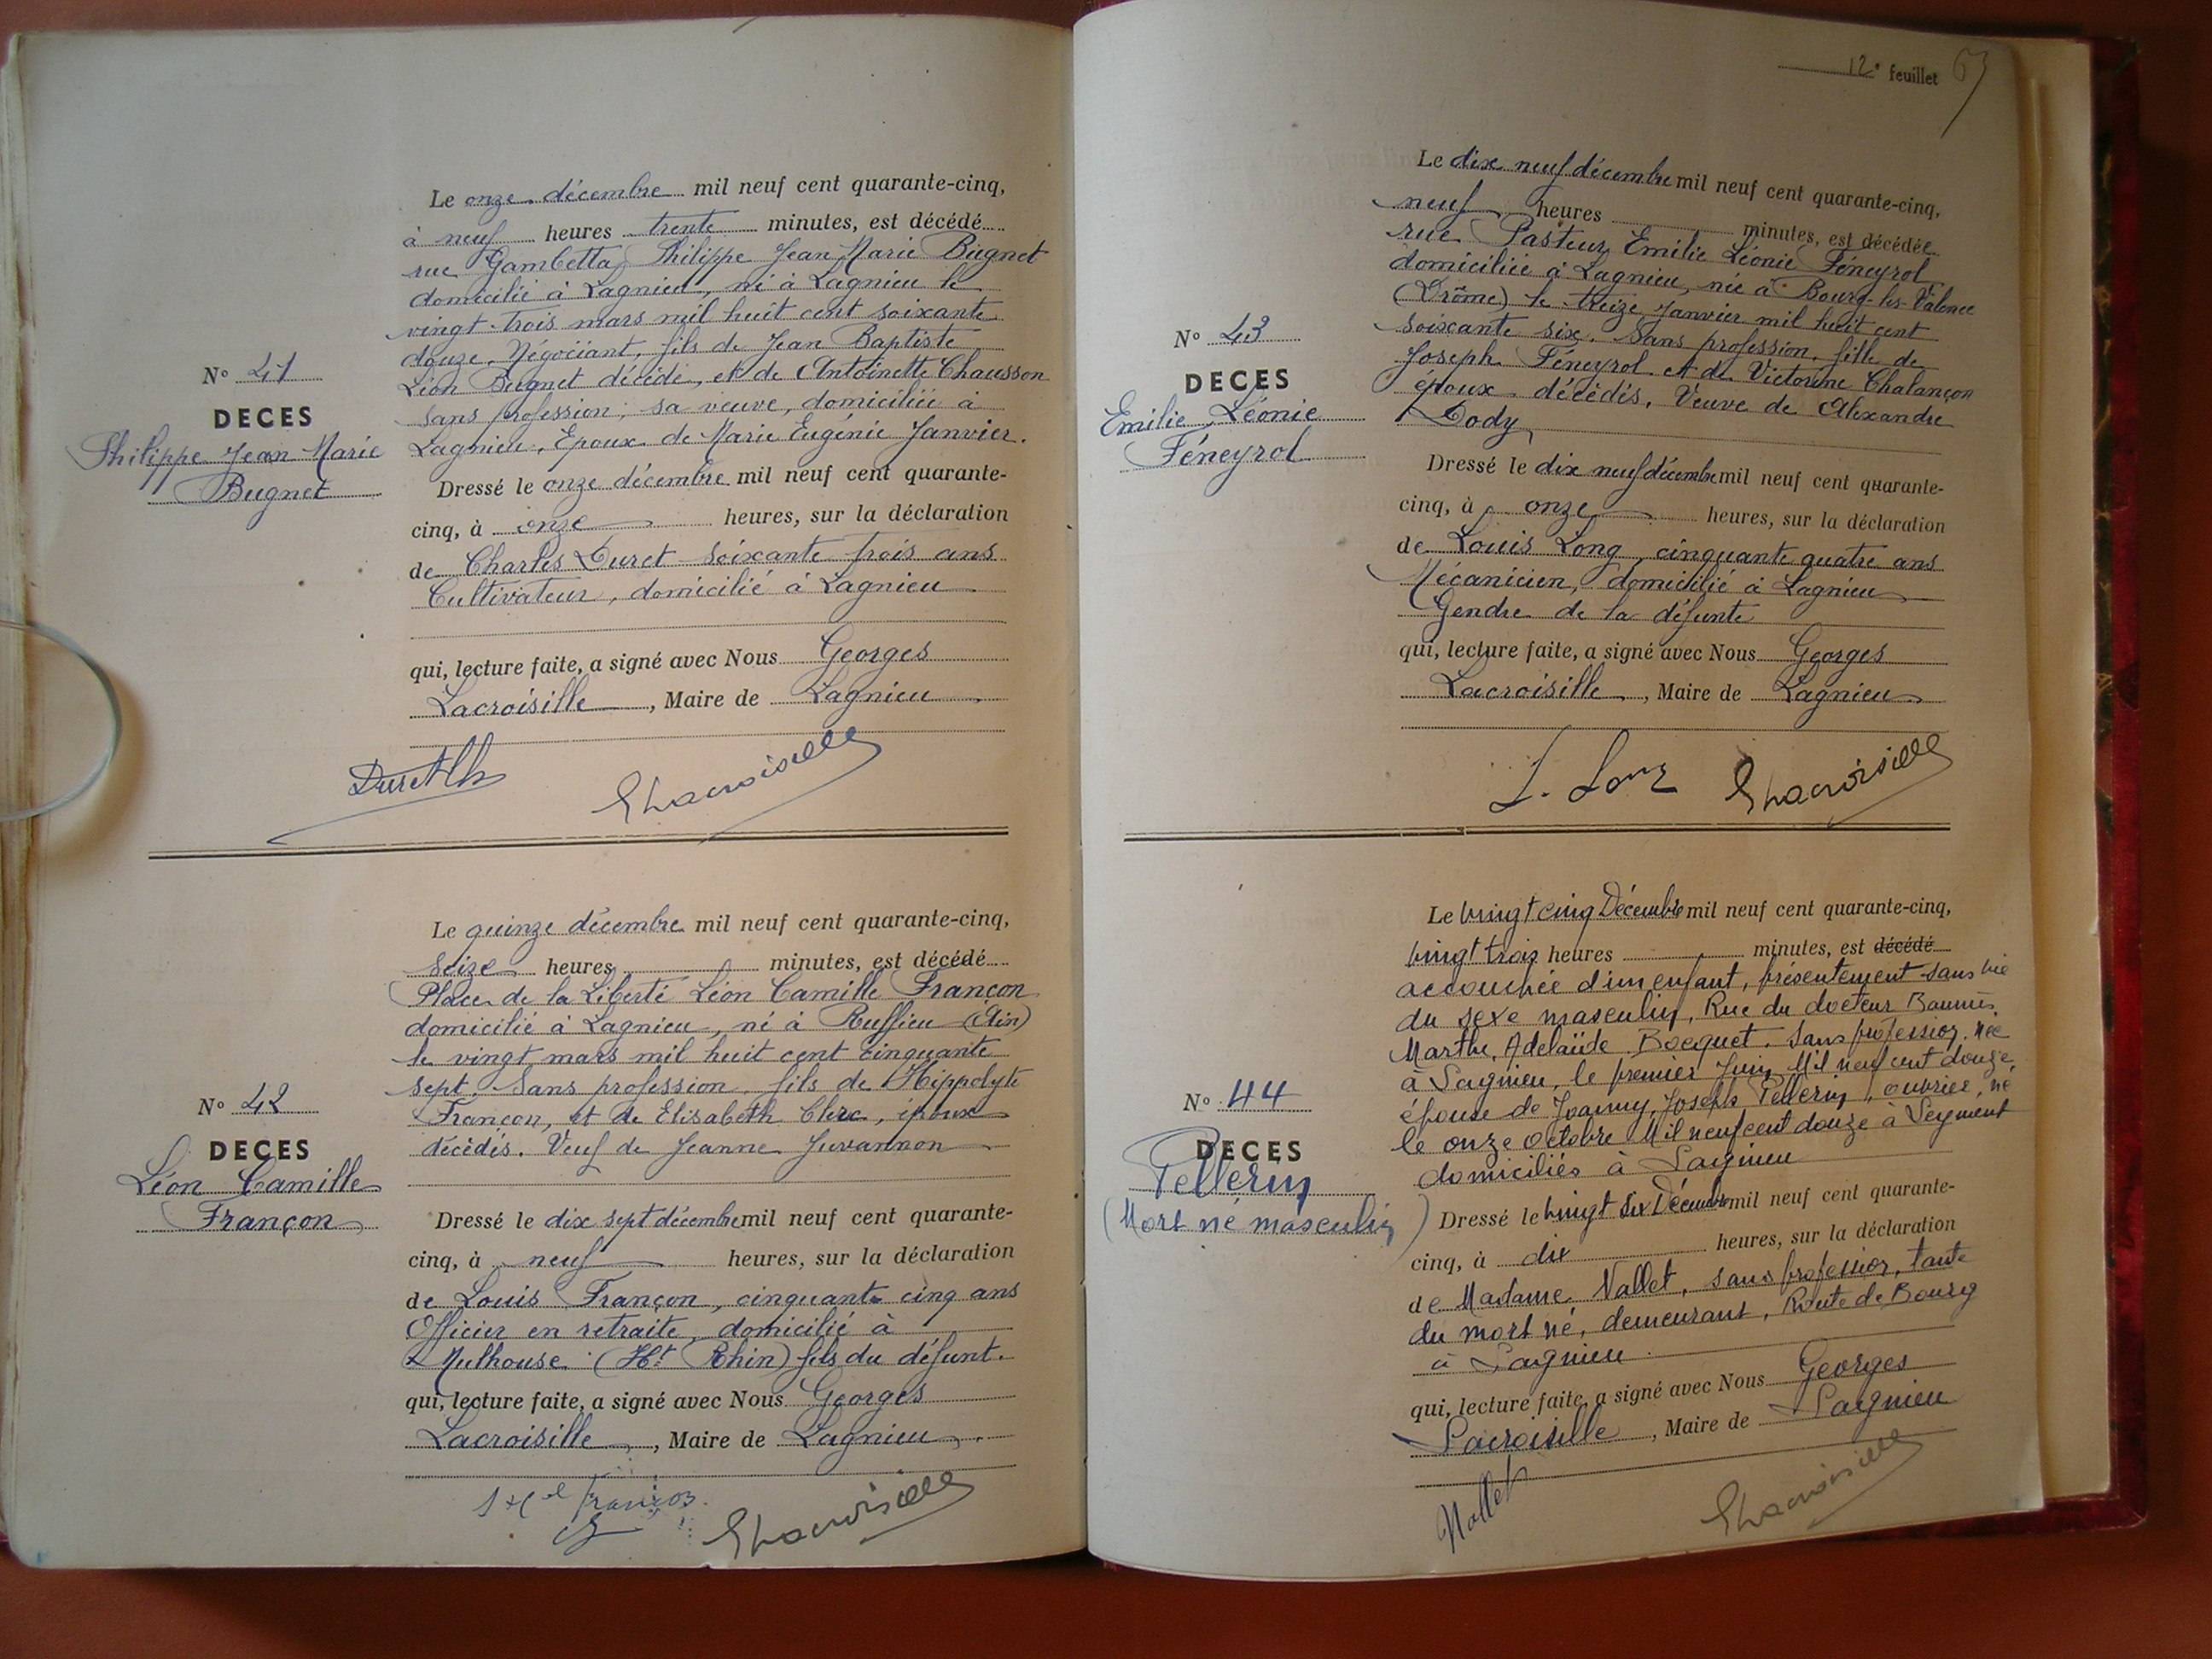 Le onze décembre mil neuf cent quarante-cinq,
à neuf heures trente minutes, est décédé
rue Gambetta, Philippe Jean Marie Bugnet
domicilié à Lagnieu, né à Lagnieu le
vingt-trois mars mil huit cent soixante
douze. Négociant, fils de Jean Baptiste
Léon Bugnet décédé, et de Antoinette Chausson
sans profession, sa veuve, domiciliée à
Lagnieu. Epoux de Marie Eugénie Janvier.
N° 41
DECES
Philippe Jean Marie
Bugnet
Dressé le onze décembre mil neuf cent quarante-
cinq, à onze heures, sur la déclaration
de Charles Duret soixante trois ans
Cultivateur, domicilié à Lagnieu
qui, lecture faite, a signé avec Nous Georges
Lacroisille, Maire de Lagnieu
Duret Ch
GLacroisille
Le quinze décembre mil neuf cent quarante-cinq,
seize heures minutes, est décédé
Place de la Liberté Léon Camille Françon
domicilié à Lagnieu, né à Ruffieu (Ain)
le vingt mars mil huit cent cinquante
sept. Sans profession, fils de Hippolyte
Françon, et de Elisabeth Clerc, époux
décédés. Veuf de Jeanne Juvannon
N° 42
DECES
Léon Camille
Françon
Dressé le dix sept décembre mil neuf cent quarante-
cinq, à neuf heures, sur la déclaration
de Louis Françon, cinquante cinq ans
Officier en retraite, domicilié à
Mulhouse (Ht Rhin) fils du défunt.
qui, lecture faite, a signé avec Nous Georges
Lacroisille, Maire de Lagnieu.
Françon
GLacroisille
12e feuillet
Le dix neuf décembre mil neuf cent quarante-cinq,
neuf heures minutes, est décédée
rue Pasteur, Emilie Léonie Féneyrol
domiciliée à Lagnieu, née à Bourg-les-Valence
(Drôme) le treize Janvier mil huit cent
soixante six. Sans profession, fille de
Joseph Féneyrol et de Victorine Chalançon
époux, décédés, Veuve de Alexandre
Dody
N° 43
DECES
Emilie Léonie
Féneyrol
Dressé le dix neuf décembre mil neuf cent quarante-
cinq, à onze heures, sur la déclaration
de Louis Long, cinquante quatre ans
Mécanicien, domicilié à Lagnieu
Gendre de la défunte
qui, lecture faite, a signé avec Nous Georges
Lacroisille, Maire de Lagnieu
L. Long
GLacroisille
Le vingt cinq Décembre mil neuf cent quarante-cinq,
vingt trois heures minutes, est décédé
accouchée d'un enfant, présentement sans vie
du sexe masculin, Rue du docteur
Marthe, Adelaïde Bocquet. Sans profession, née
à Lagnieu, le premier Juin Mil neuf cent douze,
épouse de Joanny, Joseph Pellerin, ouvrier, né
le onze octobre Mil neuf cent douze à Leyment
domiciliés à Lagnieu
N° 44
DECES
Pellerin
(Mort né masculin)
Dressé le vingt six Décembre mil neuf cent quarante-
cinq, à dix heures, sur la déclaration
de Madame Vallet, sans profession, tante
du mort né, demeurant, Route de Bourg
à Lagnieu
qui, lecture faite, a signé avec Nous Georges
Lacroisille, Maire de Lagnieu
Vallet
GLacroisille